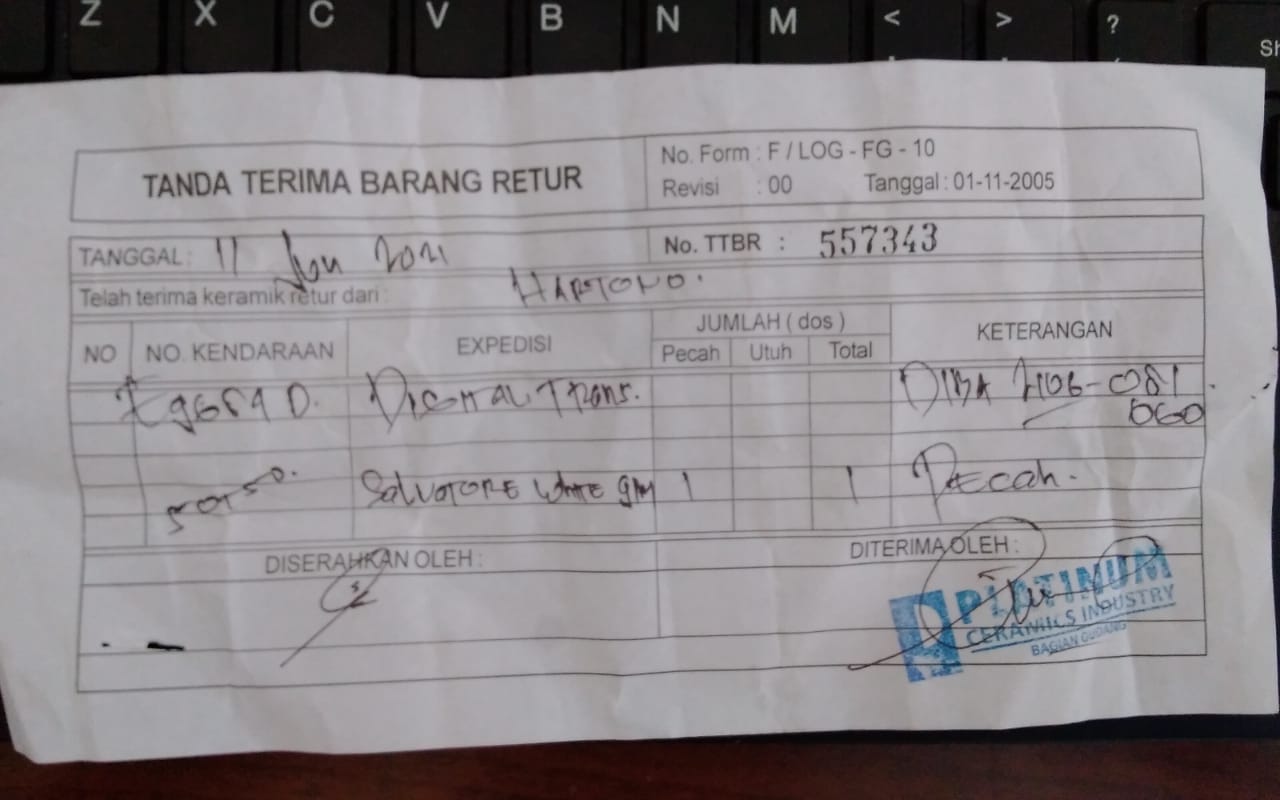 Z X C V B N M < > ?
TANDA TERIMA BARANG RETUR
No. Form : F / LOG - FG - 10
Revisi : 00 Tanggal : 01-11-2005
TANGGAL : 11 Jun 2021
No. TTBR : 557343
Telah terima keramik retur dari : HARTONO.
NO NO. KENDARAAN EXPEDISI JUMLAH ( dos ) KETERANGAN
Pecah Utuh Total
DIGITAL Trans.
50x50. SALVATORE WHITE 1 1 Pecah.
DISERAHKAN OLEH : DITERIMA OLEH :
PLATINUM
CERAMICS INDUSTRY
BAGIAN GUDANG